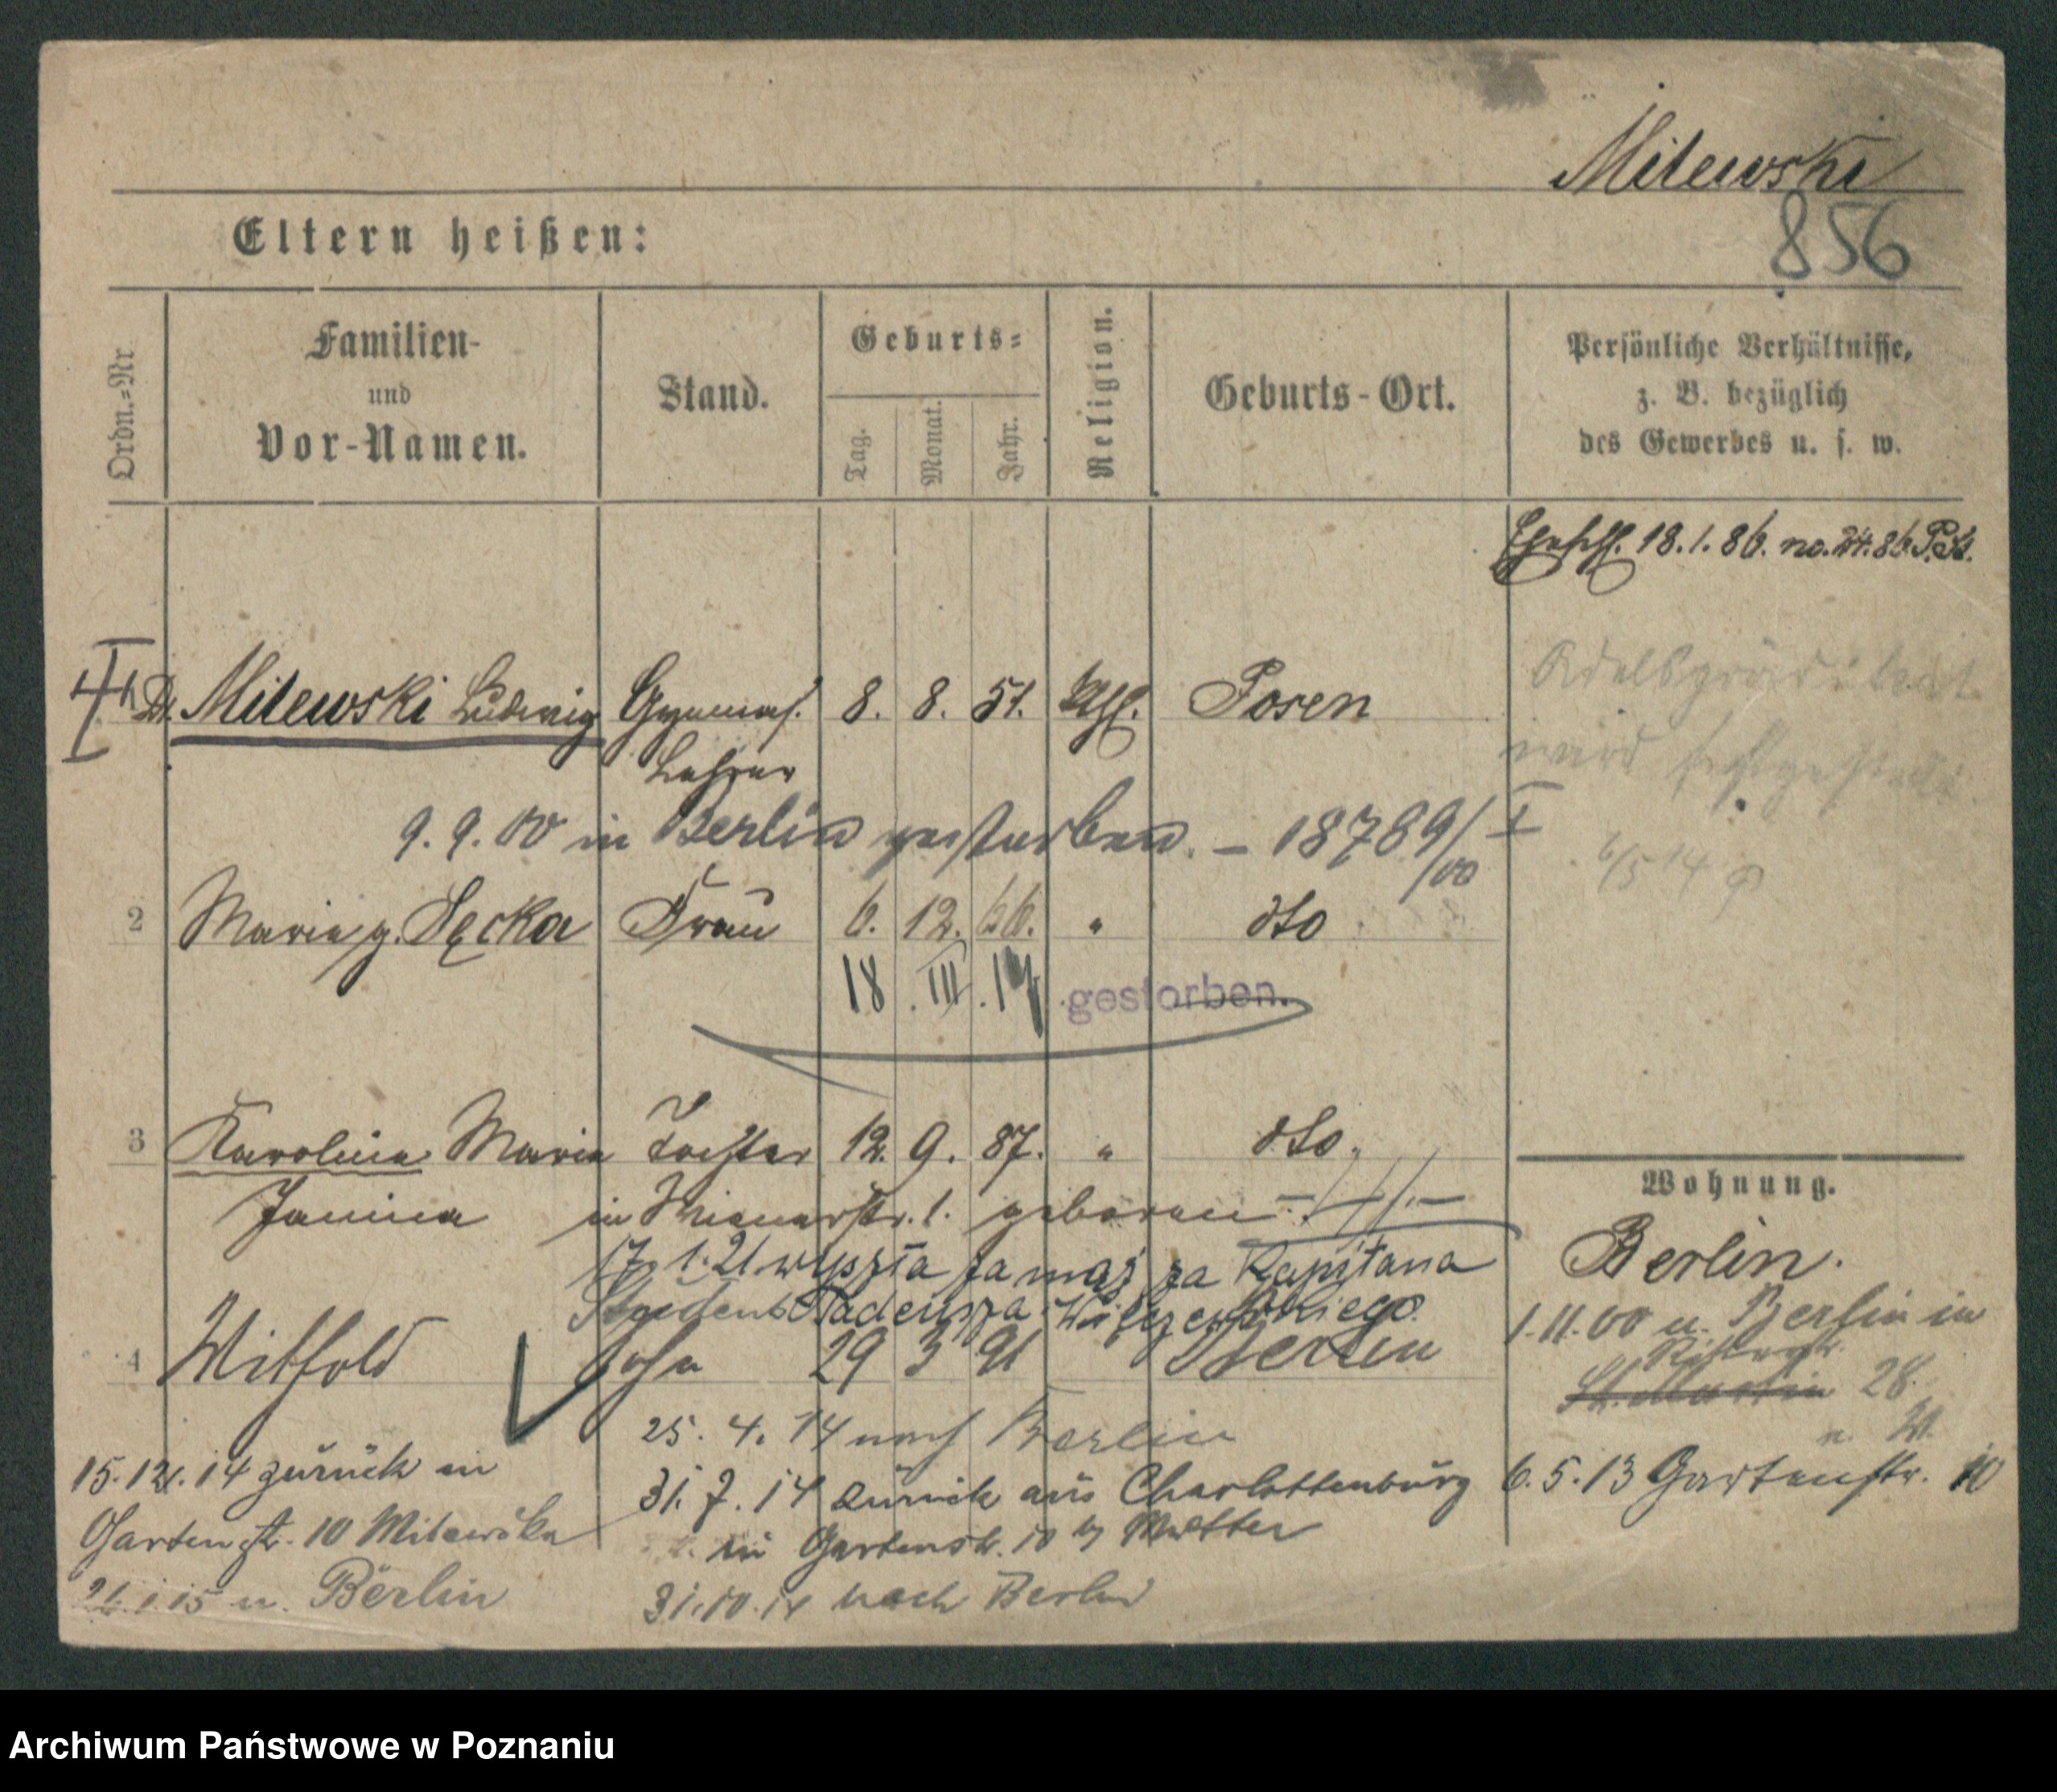 Milewski
856
Eltern heißen:
Ordn.=Nr
Familien-
und
Vor-Namen.
Stand.
Geburts=
Tag.
Monat.
Jahr.
Religion.
Geburts-Ort.
Persönliche Verhältnisse,
z. B. bezüglich
des Gewerbes u. s. w.
18.1.86. no. 86
I
Dr. Milewski Ludwig Gymnas. 8. 8. 51. Posen
Lehrer
wird festgestellt
9.9.00 in Berlin gestorben. – 18789/00 I
6/5 14
2 Maria g. Sęcka Frau 6. 12. 66. " dto
18. III. gestorben.
3 Karolina Maria Tochter 12. 9. 87. " dto.
Janina in 1. geboren
17. 1. 21 wyszła za mąż za Kapitana
Student Tadeusza
4 Witold Sohn 29 3 91 Berlin
25. 4. 14 nach Berlin
31. 7. 14 zurück aus Charlottenburg
in Gartenstr. 10 b/ Mutter
31.10.14 nach Berlin
15. 12. 14 zurück in
Gartenstr. 10 Milewska
1 15 n. Berlin
Wohnung.
Berlin.
1.11.00 v. Berlin in
St. Martin 28.
6.5.13 Gartenstr. 10
Archiwum Państwowe w Poznaniu